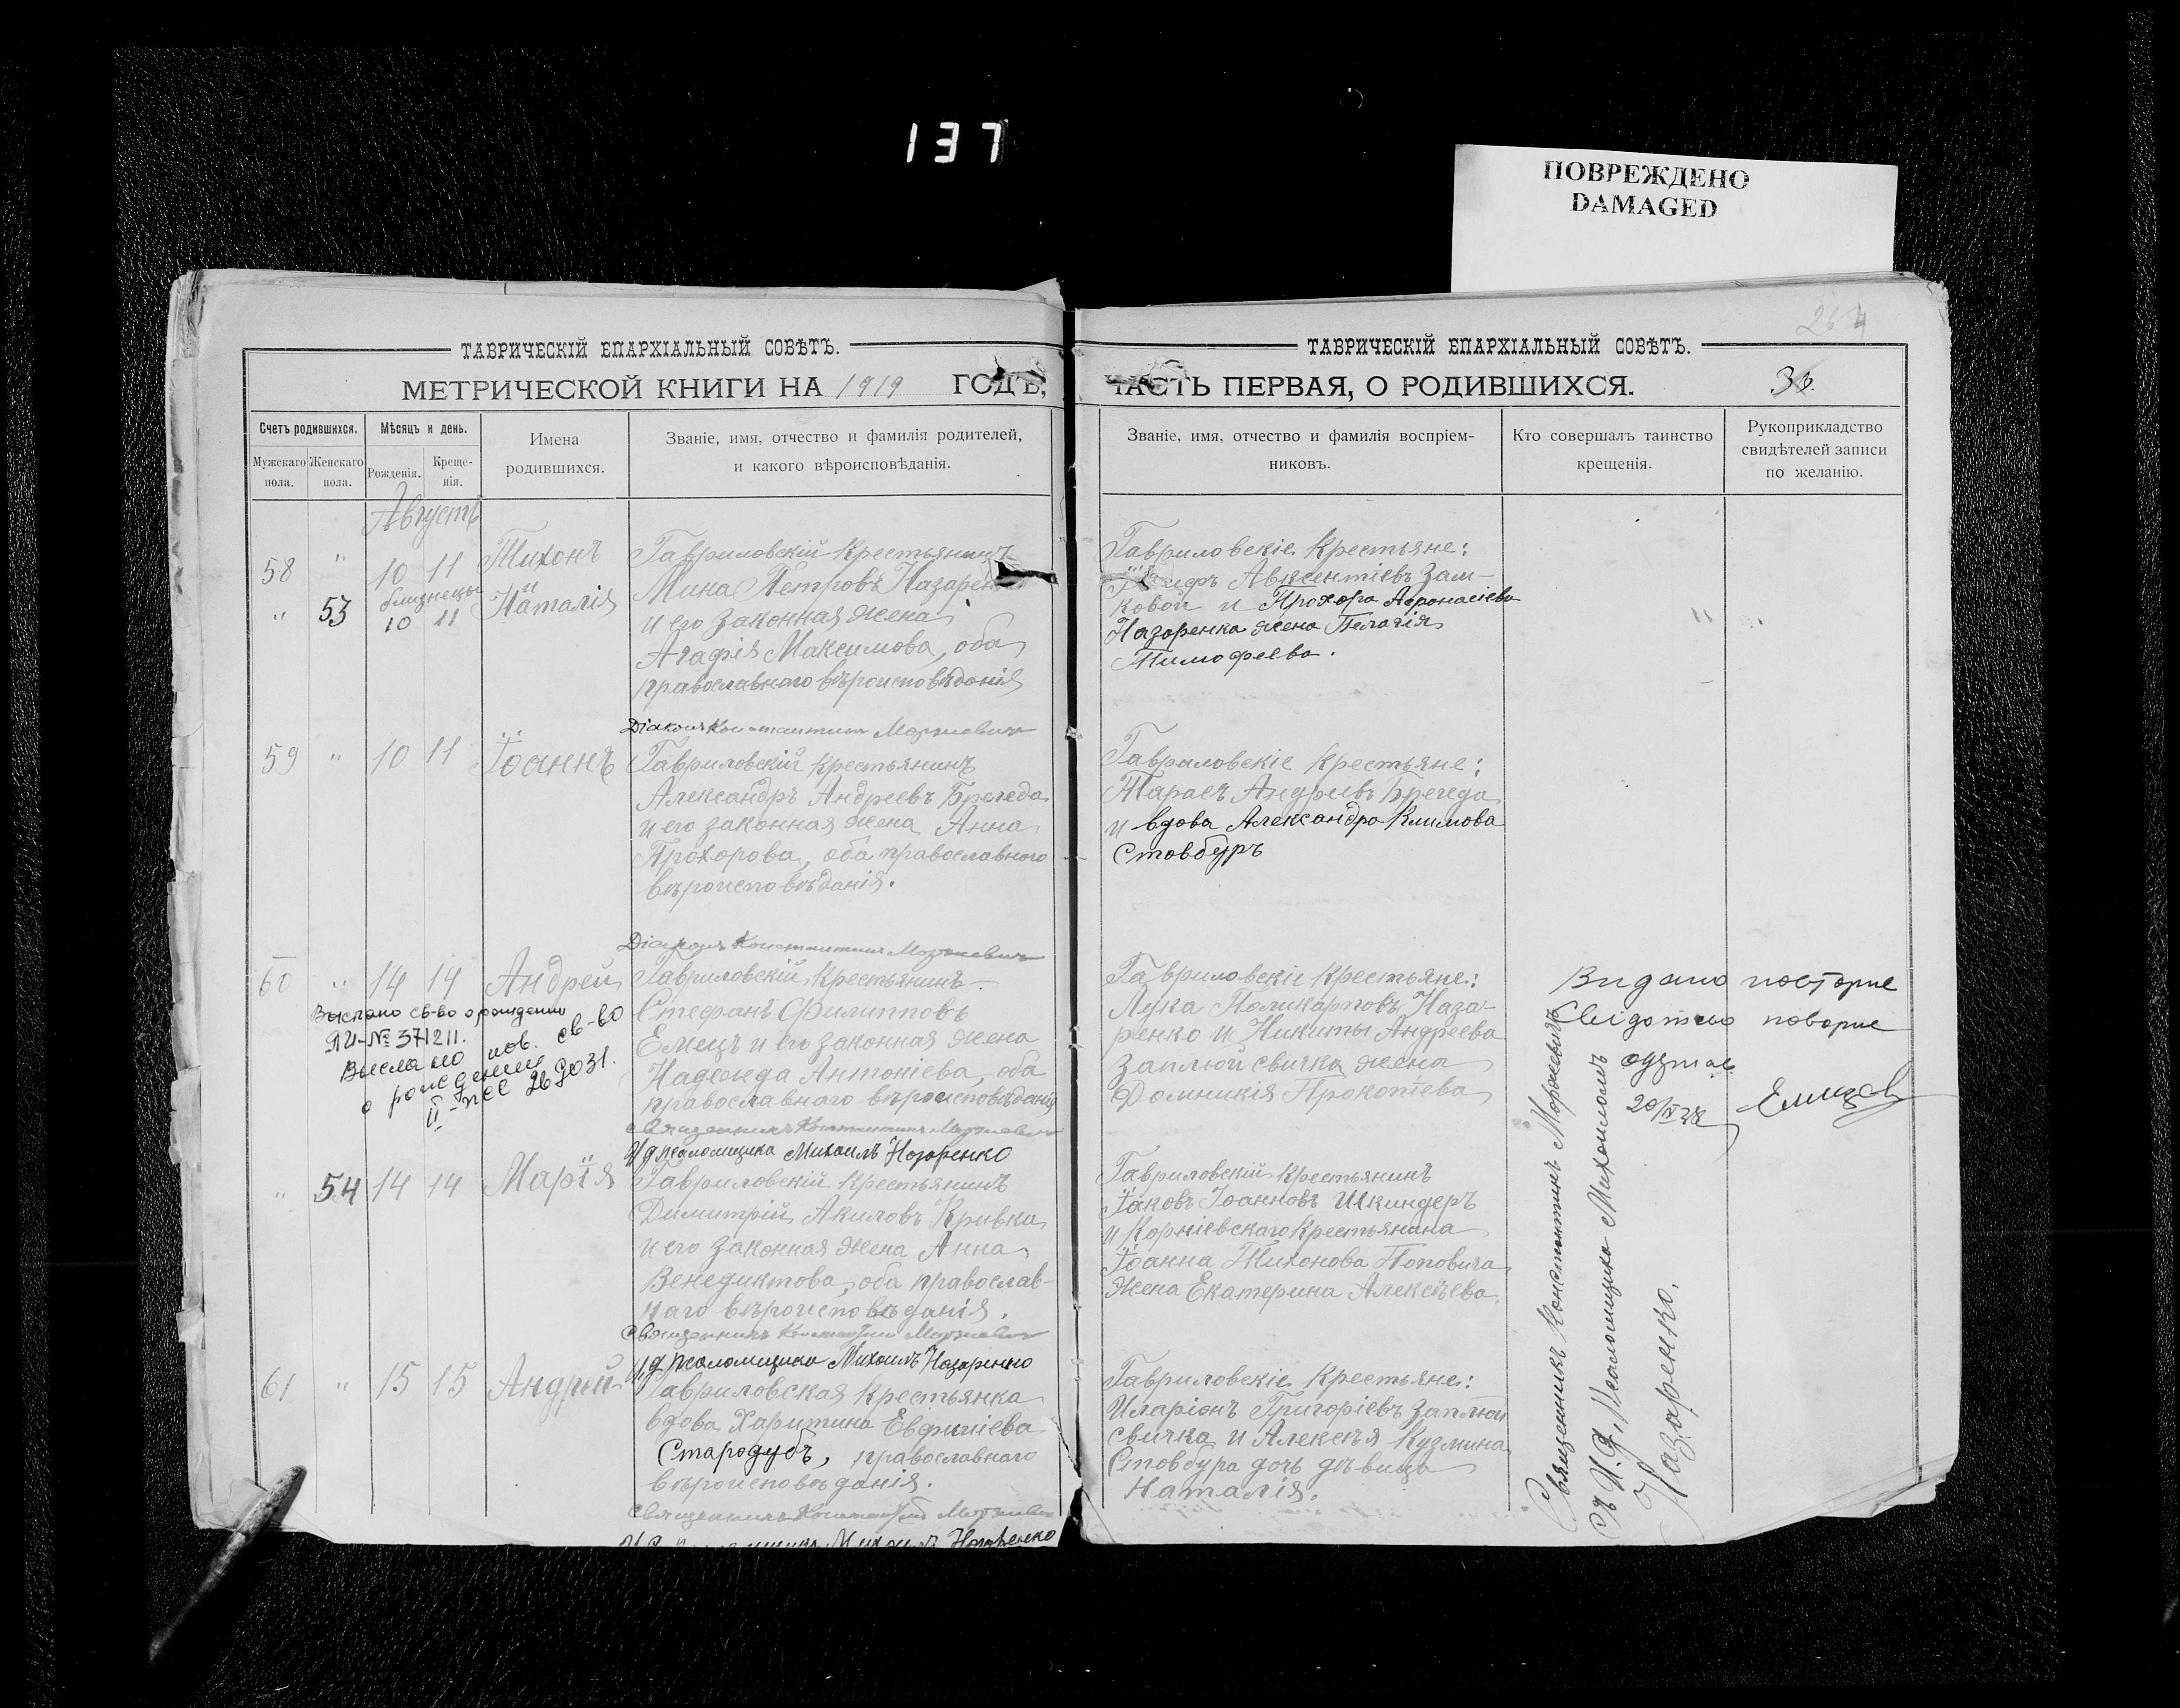 137
ПОВРЕЖДЕНО
DAMAGED
264
ТАВРИЧЕСКІЙ ЕПАРХІАЛЬНЫЙ СОВѢТЪ.
МЕТРИЧЕСКОЙ КНИГИ НА 1919 ГОДЪ,
Счетъ родившихся.
Мужскаго пола.
Женскаго пола.
Мѣсяцъ и день.
Рожденія.
Креще-
нія.
Имена
родившихся.
Званіе, имя, отчество и фамилія родителей,
и какого вѣроисповѣданія.
Августъ
58 " 10 11 Тихонъ
близнецы
" 53 10 11 Наталія
Гавриловскій крестьянинъ
Мина Петровъ Назаренко
и его законная жена
Агафія Максимова, оба
православнаго вѣроисповѣданія
Діаконъ Константинъ Моржевичъ
59 " 10 11 Іоаннъ
Гавриловскій крестьянинъ
Александръ Андреевъ Брегеда
и его законная жена Анна
Прохорова, оба православнаго
вѣроисповѣданія.
Діаконъ Константинъ Моржевичъ
60 " 14 14 Андрей
Выслано св-во о рождении
ЯИ-№ 371211.
Выслано пов. св-во
о рождении
Гавриловскій крестьянинъ
Стефанъ Филипповъ
Емецъ и его законная жена
Надежда Антоніева, оба
православнаго вѣроисповѣданія
Священникъ Константинъ Моржевичъ
И д псаломщика Михаилъ Назаренко
" 54 14 14 Марія
Гавриловскій крестьянинъ
Димитрій Акиловъ Кривка
и его законная жена Анна
Венедиктова, оба православ-
наго вѣроисповѣданія.
Священникъ Константинъ Моржевичъ
И д псаломщика Михаилъ Назаренко
61 " 15 15 Андрей
Гавриловская крестьянка
вдова Харитина Евфиміева
Стародубъ, православнаго
вѣроисповѣданія.
Священникъ Константинъ Моржевичъ
Михаилъ Назаренко
ТАВРИЧЕСКІЙ ЕПАРХІАЛЬНЫЙ СОВѢТЪ.
ЧАСТЬ ПЕРВАЯ, О РОДИВШИХСЯ.
Званіе, имя, отчество и фамилія воспріем-
никовъ.
Кто совершалъ таинство
крещенія.
Рукоприкладство
свидѣтелей записи
по желанію.
Гавриловскіе крестьяне:
Авксентіевъ Зам-
ковой и Прохора Афонасіева
Назаренка жена Пелагія
Тимофеева.
Гавриловскіе крестьяне:
Тарасъ Андреевъ Брегеда
и вдова Александра Климова
Стовбуръ
Гавриловскіе крестьяне:
Лука Поликарповъ Наза-
ренко и Никиты Андреева
Заплюйсвичка жена
Домникія Прокопіева
Видано повторне
свідотство
20/IV 28
Гавриловскій крестьянинъ
Іаковъ Іоанновъ Шкиндеръ
и Корніевскаго крестьянина
Іоанна Тихонова Поповича
жена Екатерина Алексѣева.
Гавриловскіе крестьяне:
Иларіонъ Григоріевъ Заплюй
свичка и Алексѣя Кузмина
Стовбура дочь дѣвица
Наталія.
Священникъ Константинъ Моржевичъ
съ И. д. Псаломщика Михаиломъ
Назаренко.